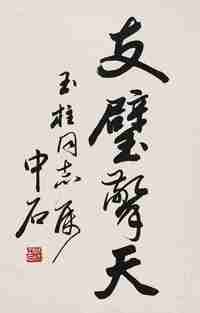 支璧擎天
玉柱同志属
中石